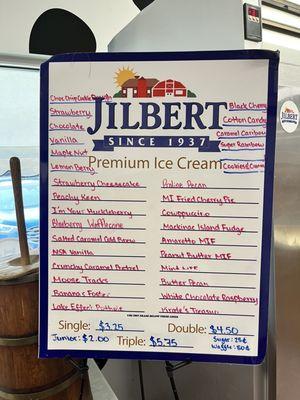 Choc Chip Cookie Dough
Strawberry
Chocolate
Vanilla
Maple Nut
Lemon Berry
Black Cherry
Cotton Candy
Caramel Caribou
Super Rainbow
Cookies & Cream
JILBERT
SINCE 1937
Premium Ice Cream
Strawberry Cheesecake
Peachy Keen
I'm Your Huckleberry
Blueberry Wafflecone
Salted Caramel Cold Brew
NSA Vanilla
Crunchy Caramel Pretzel
Moose Tracks
Banana Foster
Lake Effect
Praline Pecan
MI Fried Cherry Pie
Cowppuccino
Mackinac Island Fudge
Amaretto MIF
Peanut Butter MIF
Mint
Butter Pecan
White Chocolate Raspberry
Pirate's Treasure
Single: $3.25
Double: $4.50
Junior: $2.00
Triple: $5.75
Sugar: 25¢
Waffle: 50¢